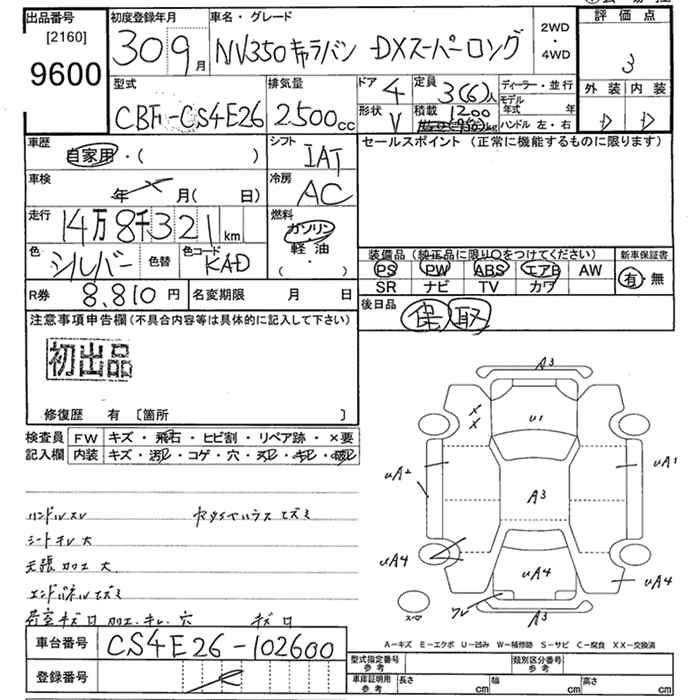 出品番号 初度登録年月 車名・グレード 2WD・4WD 評価点
[2160] 9600 30 9月 NV350キャラバン DXスーパーロング 3
型式 排気量 ドア 4 定員 3(6)人 ディーラー・並行 外装 内装
CBF-CS4E26 2500cc 形状 V 積載 1200 kg モデル年式 年 D D
ハンドル 左・右
車歴 自家用・( ) シフト IAT セールスポイント(正常に機能するものに限ります)
車検 年 月( 日) 冷房 AC
走行 14万8千321km 燃料 ガソリン・軽油・( )
色 シルバー 色替 色コード KAD
装備品(純正品に限り○をつけてください) 新車保証書
PS PW ABS エアB AW 有・無
SR ナビ TV カワ
R券 8,810円 名変期限 月 日 後日品 保 取
注意事項申告欄(不具合内容等は具体的に記入して下さい)
初出品
修復歴 有 [箇所 ]
検査員記入欄 FW キズ・飛石・ヒビ割・リペア跡・×要
内装 キズ・汚レ・コゲ・穴・スレ・キレ・破レ
ハンドルスレ
シートキレ大
天張加工大
A3
U1
UA2
UA1
A3
UA4
UA4
UA4
スペア
A3
A－キズ E－エクボ U－凹み W－補修跡 S－サビ C－腐食 XX－交換済
車台番号 CS4E26-102600
型式指定番号 参考 類別区分番号 参考
登録番号
車庫証明用 参考 長さ cm 幅 cm 高さ cm